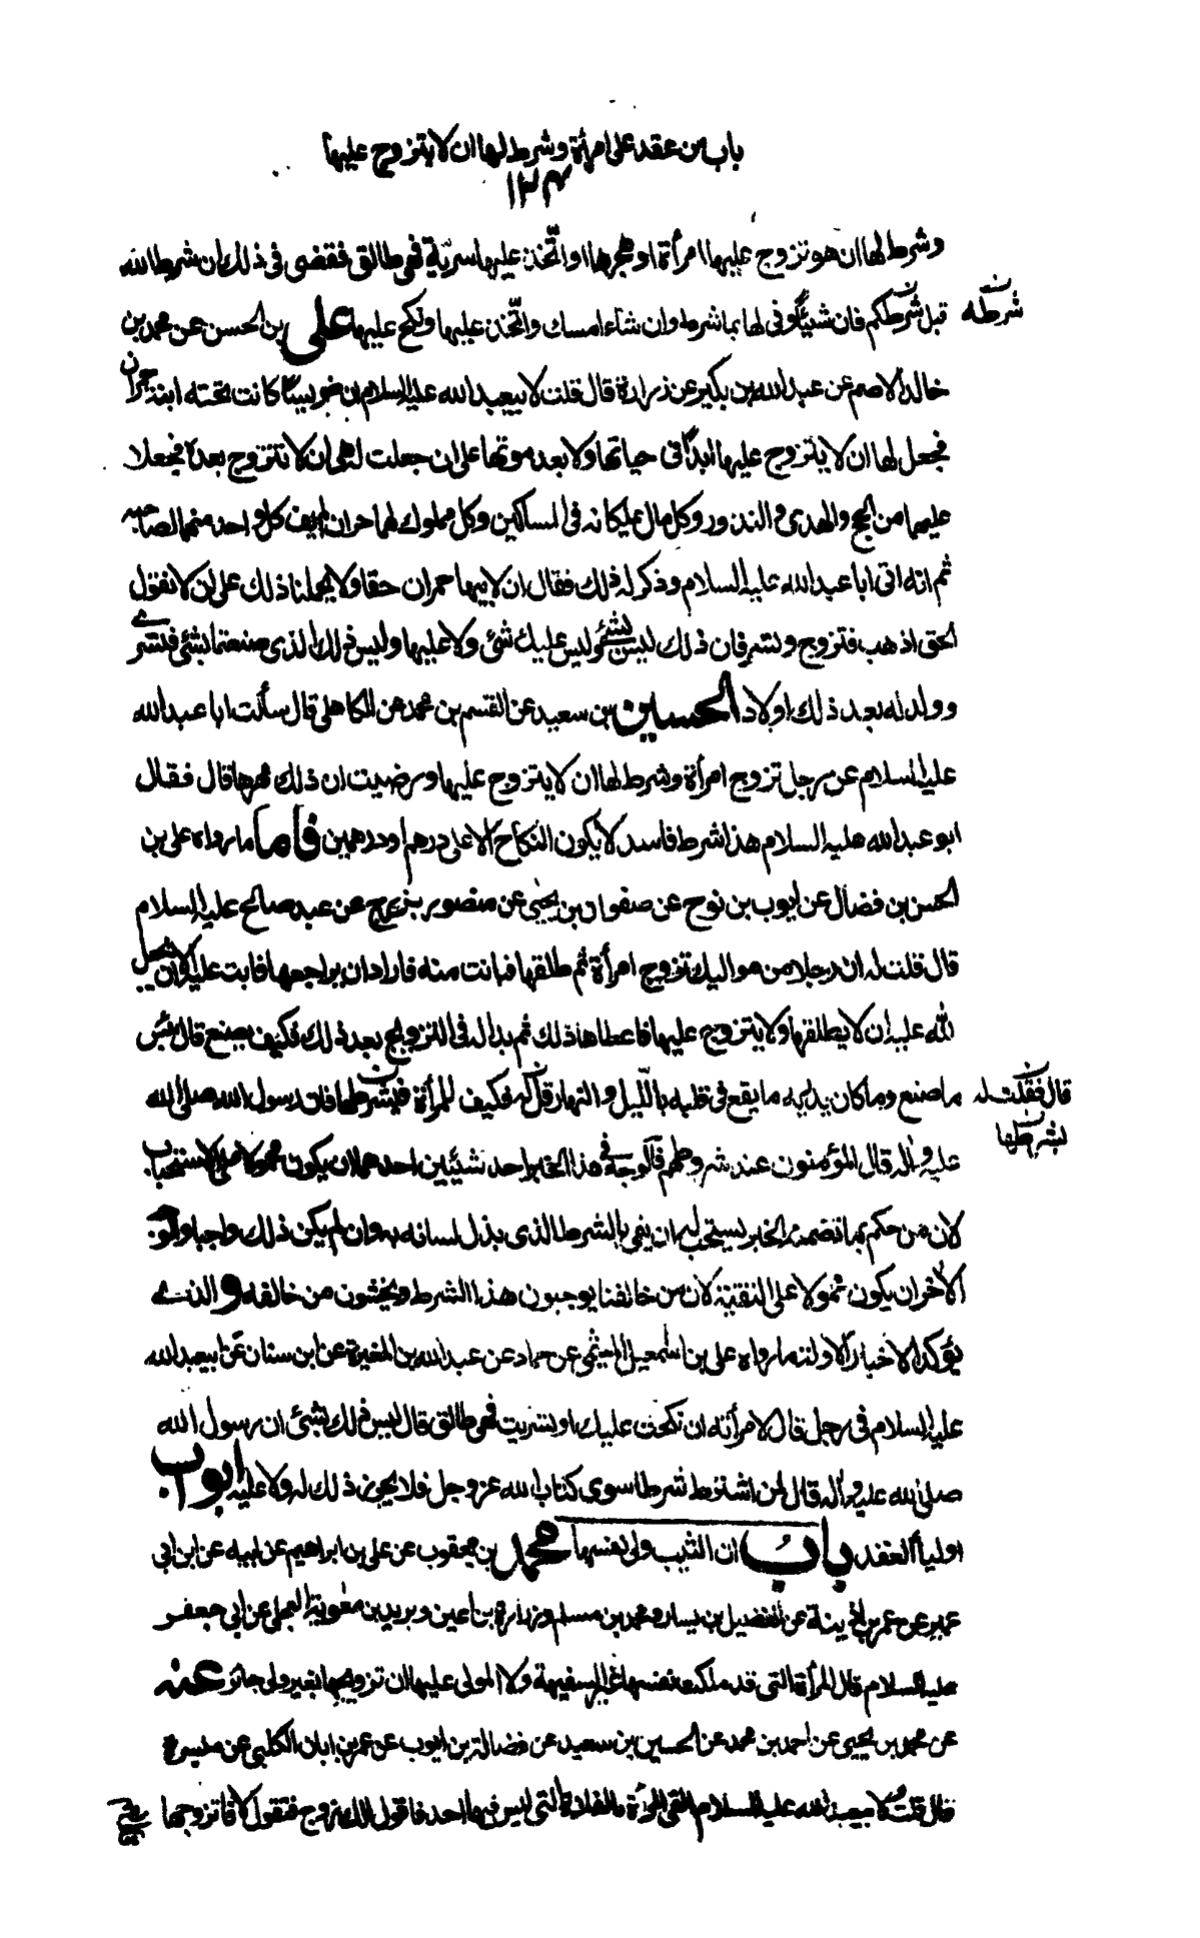 باب من عقد على امرأة وشرط لها ان لا يتزوج عليها
١٢٤
وشرط لها ان هو تزوج عليها امرأة او هجرها او اتّخذ عليها سريّة فهي طالق فقضى في ذلك ان شرط الله
قبل شرطكم فان شاء وفى لها بما شرط وان شاء امسك واتّخذ عليها ونكح عليها علي بن الحسن عن محمد بن
شرطه
خالد الاصم عن عبد الله بن بكير عن زرارة قال قلت لابيعبد الله عليه السلام ان ضريسا كانت تحته ابنة حمران
فجعل لها ان لا يتزوج عليها ابدًا في حياتها ولا بعد موتها على ان جعلت له هي ان لا تتزوج بعده فجعلا
عليهما من الحج والهدي والنذور وكل مال يملكانه في المساكين وكل مملوك لهما حران لم يف كل واحد منهما لصاحبه
ثم انه اتى ابا عبد الله عليه السلام وذكر له ذلك فقال ان لابيها حمران حقا ولا يحملنا ذلك على ان لا نقول
الحق اذهب فتزوج وتسر فان ذلك ليس بشئ وليس عليك شئ ولا عليها وليس ذلك الذي صنعتما بشئ فتسرى
وولد له بعد ذلك اولاد الحسين بن سعيد عن القسم بن محمد عن الكاهلي قال سألت ابا عبد الله
عليه السلام عن رجل تزوج امرأة وشرط لها ان لا يتزوج عليها ورضيت ان ذلك مهرها قال فقال
ابو عبد الله عليه السلام هذا شرط فاسد لا يكون النكاح الا على درهم او درهمين فاما ما رواه علي بن
الحسن بن فضال عن ايوب بن نوح عن صفوان بن يحيى عن منصور بزرج عن عبد صالح عليه السلام
قال قلت له ان رجلا من مواليك تزوج امرأة ثم طلقها فبانت منه فاراد ان يراجعها فابت عليه الا ان يجعل
لله عليه ان لا يطلقها ولا يتزوج عليها فاعطاها ذلك ثم بدا له في التزويج بعد ذلك فكيف يصنع قال بئس
ما صنع وما كان يدريه ما يقع في قلبه بالليل والنهار قل له فكيف للمرأة بشرطها فان رسول الله صلى الله
قال فقلت له
بشرطها
عليه وآله قال المؤمنون عند شروطهم فالوجه في هذا الخبر احد شيئين احدهما ان يكون محمولا على الاستحباب
لان من حكم بما تضمنه الخبر يستحب له ان يفي بالشرط الذي بذل لسانه به وان لم يكن ذلك واجبا والوجه
الآخر ان يكون محمولا على التقية لان من خالفنا يوجبون هذا الشرط ويخشون من خالفه والذي
يؤكد الاخبار الاولة ما رواه علي بن اسمعيل الميثمي عن حماد عن عبد الله بن المغيرة عن ابن سنان عن ابيعبد الله
عليه السلام في رجل قال لامرأته ان نكحت عليك او تسريت فهي طالق قال ليس ذلك بشئ ان رسول الله
صلى الله عليه وآله قال من اشترط شرطا سوى كتاب الله عز وجل فلا يجوز ذلك له ولا عليه ابواب
اولياء العقد باب ان الثيب ولى نفسها محمد بن يعقوب عن علي بن ابراهيم عن ابيه عن ابن ابي
عمير عن عمر بن اذينة عن الفضيل بن يسار ومحمد بن مسلم وزرارة بن اعين وبريد بن معوية العجلي عن ابي جعفر
عليه السلام قال المرأة التي قد ملكت نفسها غير السفيهة ولا المولى عليها ان تزويجها بغير ولي جائز عنه
عن محمد بن يحيى عن احمد بن محمد عن الحسين بن سعيد عن فضالة بن ايوب عن عمر بن ابان الكلبي عن ميسرة
قال قلت لابيعبد الله عليه السلام القى المرأة بالفلاة التي ليس فيها احد فاقول الك زوج فتقول لا فاتزوجها